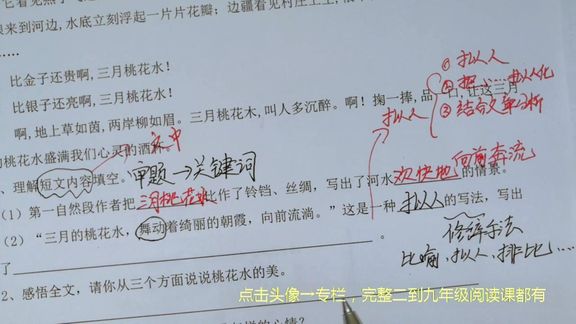 来到河边,水底立刻浮起一片片花瓣;边疆看见村庄上
比金子还贵啊,三月桃花水!
比银子还亮啊,三月桃花水!
啊,地上草如茵,两岸柳如眉。三月桃花水,叫人多沉醉。啊!掬一捧,品一口,让这三月
桃花水盛满我们心灵的酒杯
① 拟人
② 把……拟人化
③ 结合文章分析
拟人
文中
理解短文内容填空。 审题→关键词
(1)第一自然段作者把三月桃花水比作了铃铛、丝绸,写出了河水欢快地向前奔流的情景。
(2)“三月的桃花水,舞动着绮丽的朝霞,向前流淌。”这是一种拟人的写法,写出
了 。
修辞手法
比喻、拟人、排比……
2、感悟全文,请你从三个方面说说桃花水的美。
点击头像→专栏,完整二到九年级阅读课都有